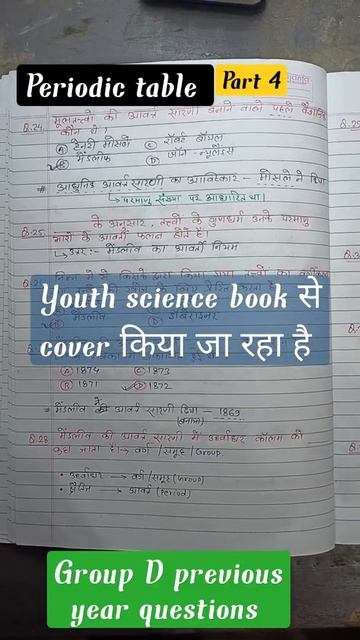 Periodic table
Part 4
Q.24. मूलतत्वों की आवर्त सारणी बनाने वाले पहले वैज्ञानिक
कौन थे?
(A) हेनरी मोसले (C) रॉबर्ट बॉयल
(B) मेंडलीफ (D) जॉन - न्यूलैंड्स
# आधुनिक आवर्त सारणी का आविष्कार - मोसले ने दिया
↳ परमाणु संख्या पर आधारित था।
Q.25. के अनुसार, तत्वों के गुणधर्म उनके परमाणु
भारों के आवर्ती फलन होते हैं।
↳ उत्तर:- मेंडलीव का आवर्ती नियम
Youth science book से
cover किया जा रहा है
मेंडलीव (D) डॉबेराइनर
(A) 1874 (C) 1873
(B) 1871 (D) 1872
= मेंडलीव ने आवर्त सारणी दिया - 1869
(बनाया)
Q.28. मेंडलीव की आवर्त सारणी में उर्ध्वाधर कॉलम को
कहा जाता है। → वर्ग / समूह / Group.
• उर्ध्वाधर → वर्ग / समूह (Group)
• क्षैतिज → आवर्त (Period)
Group D previous
year questions